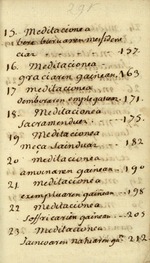 15. Meditacionea
ciar — 157.
16. Meditacionea
graciaren gainean. 163
17 Meditacionea
denboraren emplegatean. 171.
18. Meditacionea
Sacramenduez — 175.
19 Meditacionea
Meça Sainduaz — 182
20 meditacionea
amorioaren gainean — 190
21 meditacionea
exempluaren gainean — 198
22 meditacionea
Soffricariён gainean — 205
23. Meditacionea
Jaincoaren nahiaren gn 212